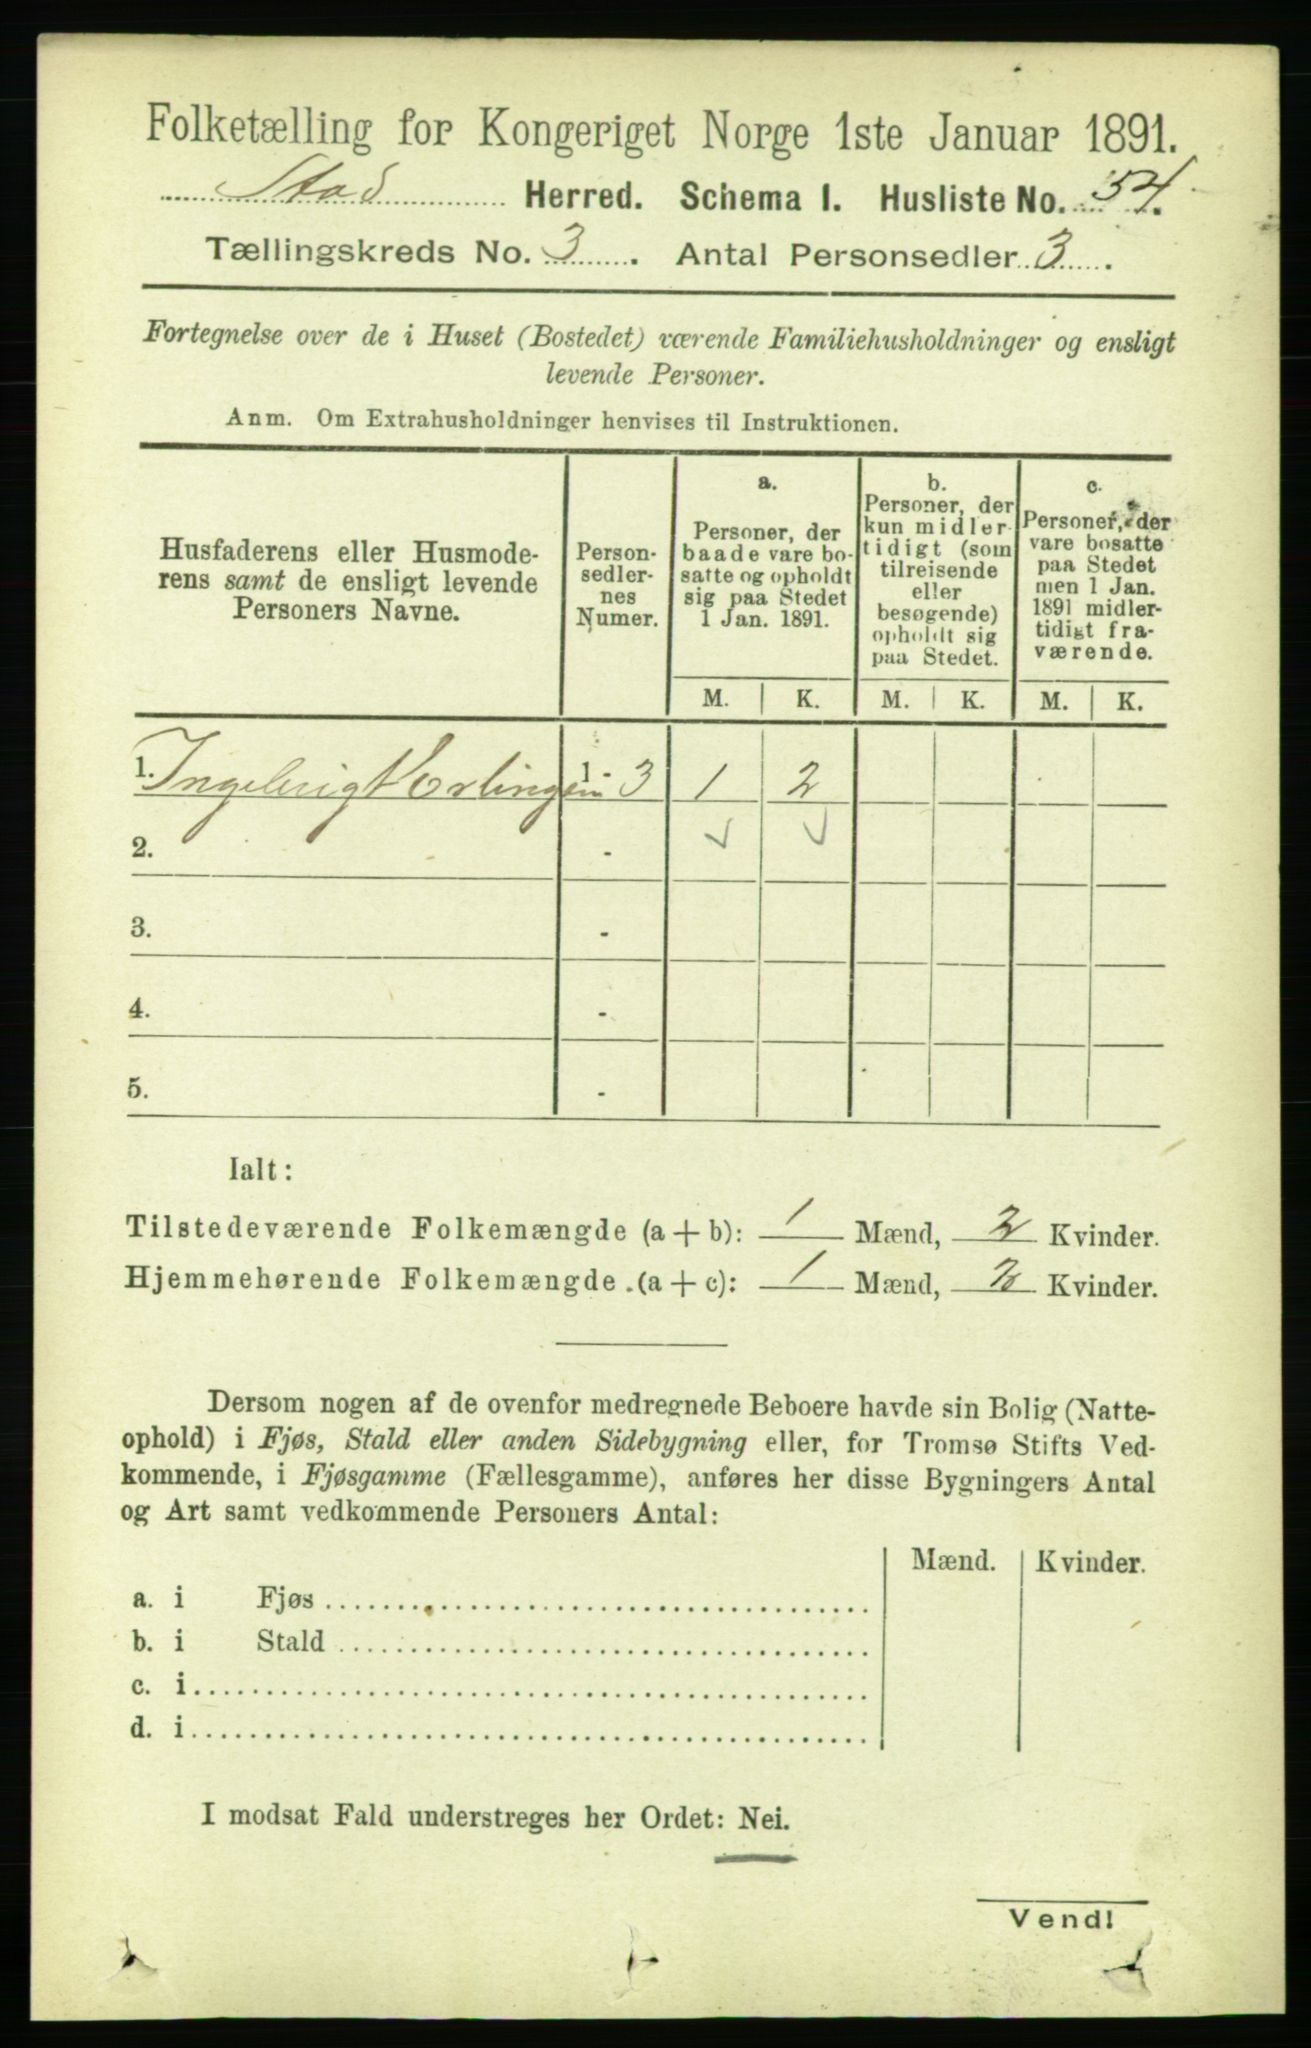 Folketælling for Kongeriget Norge 1ste Januar 1891.
Stod Herred. Schema I. Husliste No. 54.
Tællingskreds No. 3. Antal Personsedler 3.
Fortegnelse over de i Huset (Bostedet) værende Familiehusholdninger og ensligt
levende Personer.
Anm. Om Extrahusholdninger henvises til Instruktionen.
Husfaderens eller Husmode-
rens samt de ensligt levende
Personers Navne.
Person-
sedler-
nes
Numer.
a.
Personer, der
baade vare bo-
satte og opholdt
sig paa Stedet
1 Jan. 1891.
b.
Personer, der
kun midler-
tidigt (som
tilreisende
eller
besøgende)
opholdt sig
paa Stedet.
c.
Personer, der
vare bosatte
paa Stedet
men 1 Jan.
1891 midler-
tidigt fra-
værende.
M. K. M. K. M. K.
1. Ingebrigt Erlingsen 1 - 3 1 2
2. -
3. -
4. -
5. -
Ialt:
Tilstedeværende Folkemængde (a + b): 1 Mænd, 2 Kvinder.
Hjemmehørende Folkemængde (a + c): 1 Mænd, 2 Kvinder.
Dersom nogen af de ovenfor medregnede Beboere havde sin Bolig (Natte-
ophold) i Fjøs, Stald eller anden Sidebygning eller, for Tromsø Stifts Ved-
kommende, i Fjøsgamme (Fællesgamme), anføres her disse Bygningers Antal
og Art samt vedkommende Personers Antal:
Mænd. Kvinder.
a. i Fjøs
b. i Stald
c. i
d. i
I modsat Fald understreges her Ordet: Nei.
Vend!